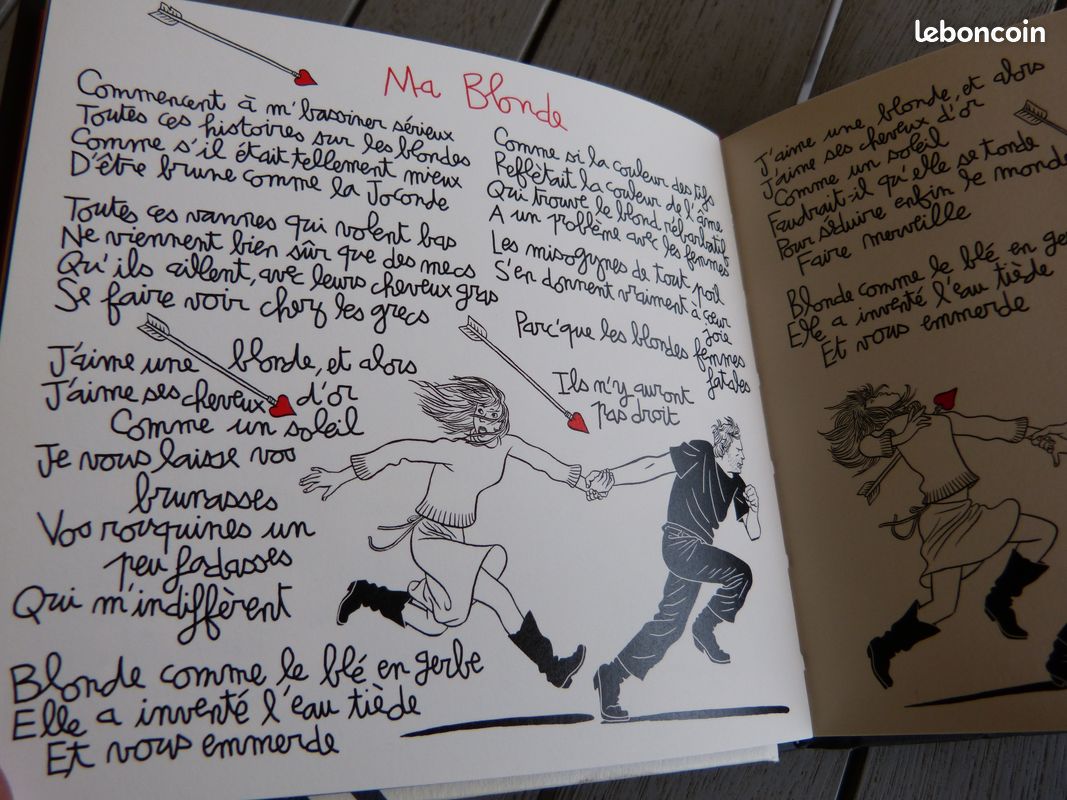 leboncoin
Ma Blonde
Commencent à m'bassiner sérieux
Toutes ces histoires sur les blondes
Comme s'il était tellement mieux
D'être brune comme la Joconde
Toutes ces vannes qui volent bas
Ne viennent bien sûr que des mecs
Qu'ils aillent, avec leurs cheveux gras
Se faire voir chez les grecs
J'aime une blonde, et alors
J'aime ses cheveux d'or
Comme un soleil
Je vous laisse vos
brunasses
Vos rouquines un
peu fadasses
Qui m'indiffèrent
Blonde comme le blé en gerbe
Elle a inventé l'eau tiède
Et vous emmerde
Comme si la couleur des tifs
Reflétait la couleur de l'âme
Qui trouve le blond rébarbatif
A un poblème avec les femmes
Les misogynes de tout poil
S'en donnent vraiment à cœur
joie
Parc'que les blondes femmes
fatales
Ils n'y auront
pas droit
J'aime une blonde, et alors
J'aime ses cheveux d'or
Comme un soleil
Faudrait-il qu'elle se tonde
Pour séduire enfin le monde
Faire merveille
Blonde comme le blé en ge
Elle a inventé l'eau tiède
Et vous emmerde